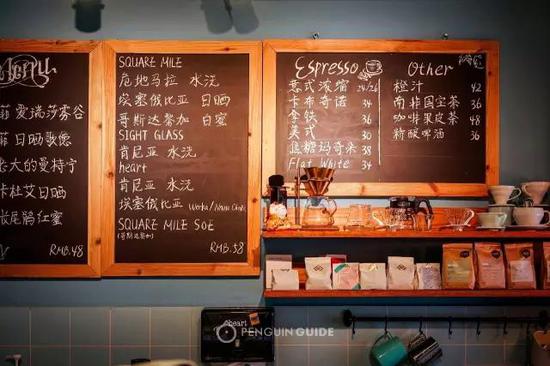 菲 爱瑞莎雾谷
菲 日晒歌德
老大的曼特宁
卡杜艾日晒
长尾鹃红蜜
RMB.48
SQUARE MILE
危地马拉 水洗
埃塞俄比亚 日晒
哥斯达黎加 白蜜
SIGHT GLASS
肯尼亚 水洗
heart
肯尼亚 水洗
埃塞俄比亚 Worka
SQUARE MILE SOE
(哥斯达黎加)
RMB.58
Espresso
意式浓缩 24/26
卡布奇诺 34
拿铁 36
美式 30
焦糖玛奇朵 38
Flat White 34
Other
橙汁 42
南非国宝茶 36
咖啡果皮茶 48
精酿啤酒 36
heart
PENGUIN GUIDE